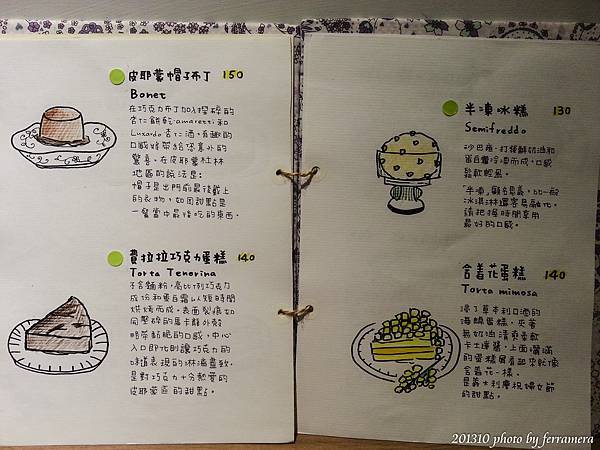 皮耶蒙帽子布丁 150
Bonet
在巧克力布丁加入揉碎的
杏仁餅乾amaretti和
Luxardo杏仁酒,有趣的
口感將帶給您意外的
驚喜。在皮耶蒙杜林
地區的說法是:
帽子是出門前最後戴上
的衣物,如同甜點是
一餐當中最後吃的東西。
費拉拉巧克力蛋糕 140
Torta Tenerina
不含麵粉,高比例巧克力
成份和蛋白霜以短時間
烘烤而成。表面裂痕切
同壓碎的馬卡龍外殼
明帶酥脆的口感,中心
入口即化則讓巧克力的
味道表現的淋漓盡致。
是對巧克力十分熱愛的
皮耶蒙區的甜點。
半凍冰糕 130
Semifreddo
沙巴雍,打發鮮奶油和
蛋白霜冷凍而成,口感
鬆軟輕盈。
「半凍」顧名思義,比一般
冰淇淋還容易融化。
請把握時間享用
最好的口感。
含羞花蛋糕 140
Torta mimosa
浸了草本利口酒的
海綿蛋糕,夾著
無奶油清爽柔軟
卡士達醬,上面灑滿
的蛋糕屑看起來就像
含羞花一樣。
是義大利慶祝婦女節
的甜點。
201310 photo by ferramera